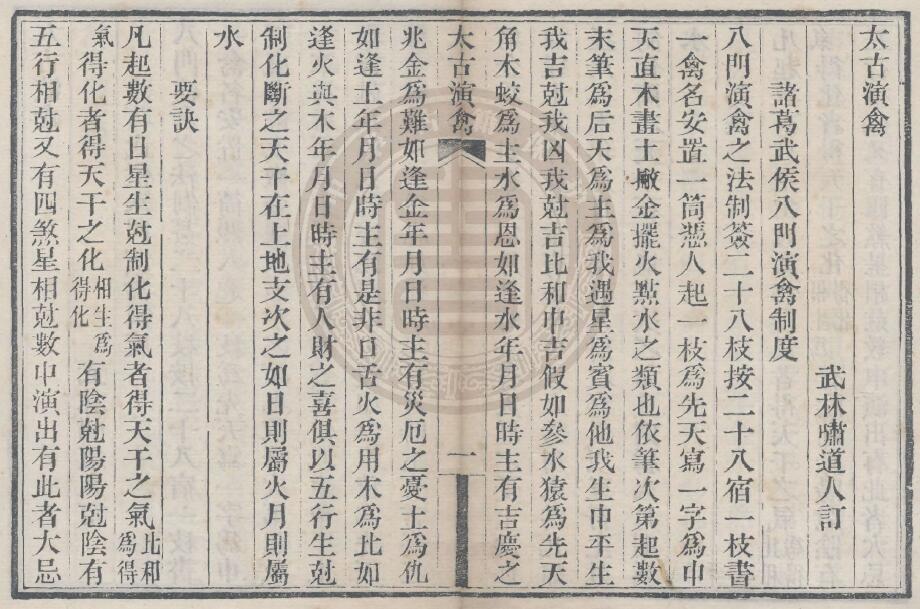 太古演禽
武林嘯道人訂
諸葛武侯八門演禽制度
八門演禽之法制簽二十八枝按二十八宿一枝書
一禽名安置一筒憑人起一枝爲先天寫一字爲中
天直木畫土撇金擺火點水之類也依筆次第起數
末筆爲后天爲主爲我遇星爲賓爲他我生中平生
我吉尅我凶我尅吉比和中吉假如參水猿爲先天
角木蛟爲主水爲恩如逢水年月日時主有吉慶之
太古演禽 一
兆金爲難如逢金年月日時主有災厄之憂土爲仇
如逢土年月日時主有是非口舌火爲用木爲比如
逢火與木年月日時主有人財之喜俱以五行生尅
制化斷之天干在上地支次之如日則屬火月則屬
水
要訣
凡起數有日星生尅制化得氣者得天干之氣比和爲得
氣得化者得天干之化相生爲得化有陰尅陽陽尅陰有
五行相尅又有四煞星相尅數中演出有此者大忌